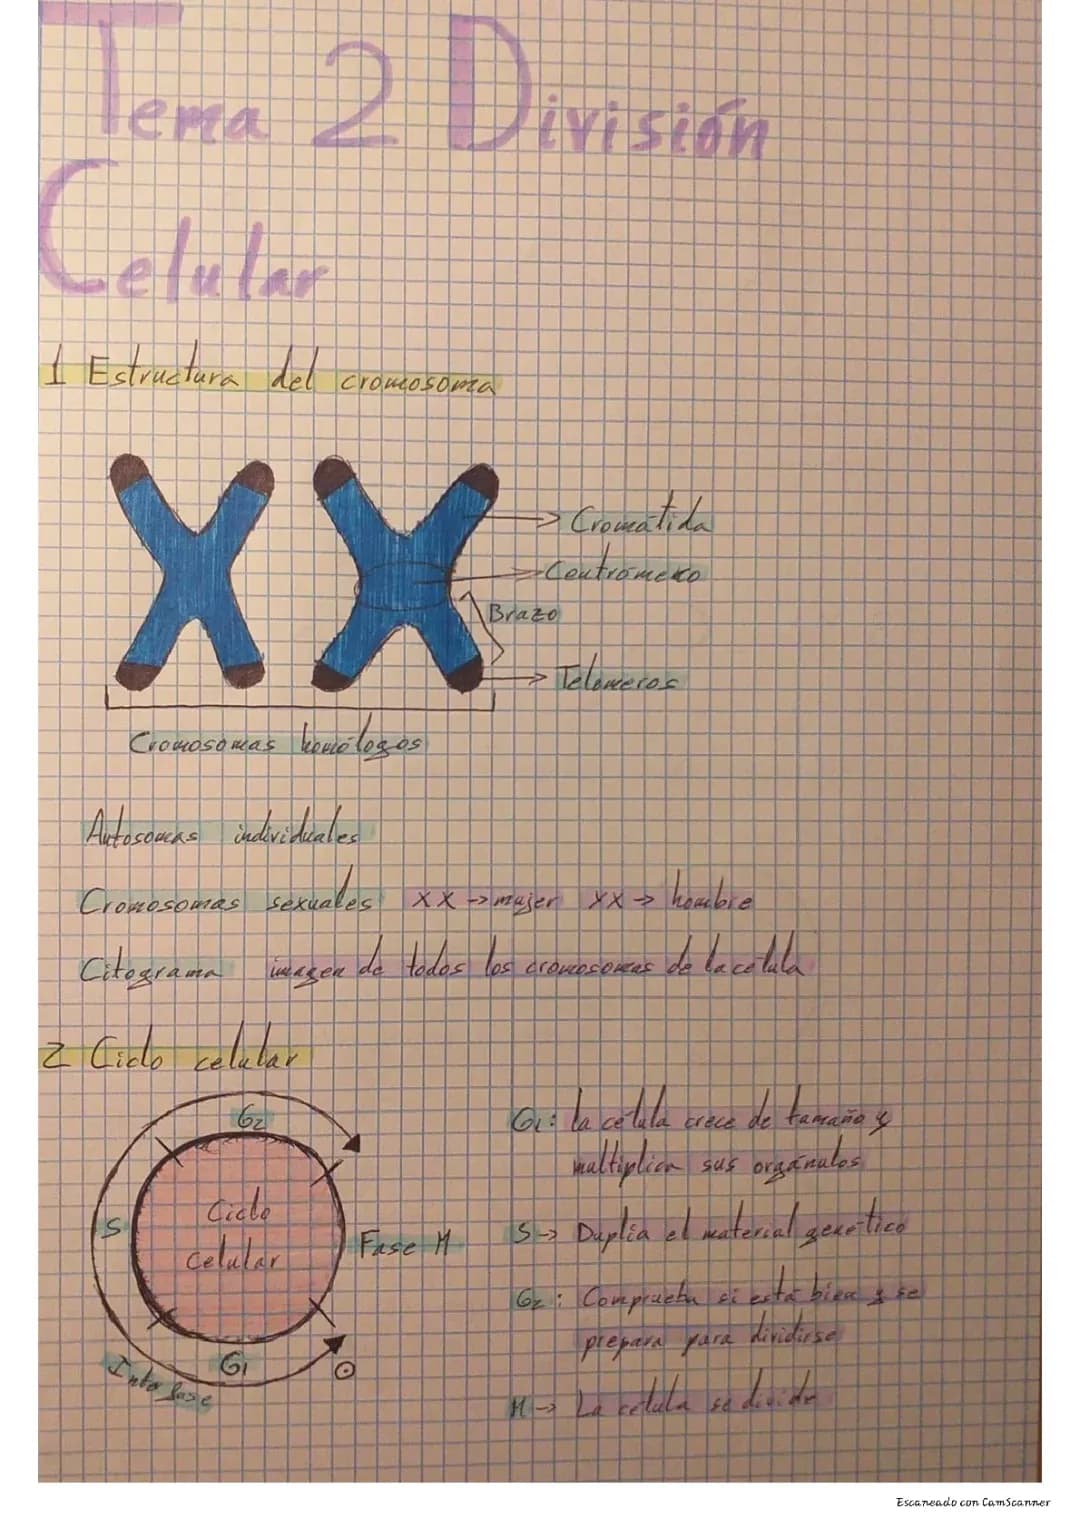 Tema 2 División
Celular
1 Estructura del cromosoma
Cromátida
Centrómero
Brazo
Telómeros
Cromosomas homólogos
Autosomas individuales
Cromosomas sexuales XX → mujer XX → hombre
Citograma imagen de todos los cromosomas de la célula
2 Ciclo celular
G2
S
Ciclo
celular
Fase M
G1
Interfase
G1: la célula crece de tamaño y
multiplica sus orgánulos
S → Duplia el material genético
G2: Comprueba si está bien y se
prepara para dividirse
M → La célula se divide
Escaneado con CamScanner